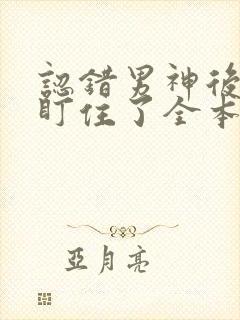 認錯男神後
盯住了全本
亞月亮